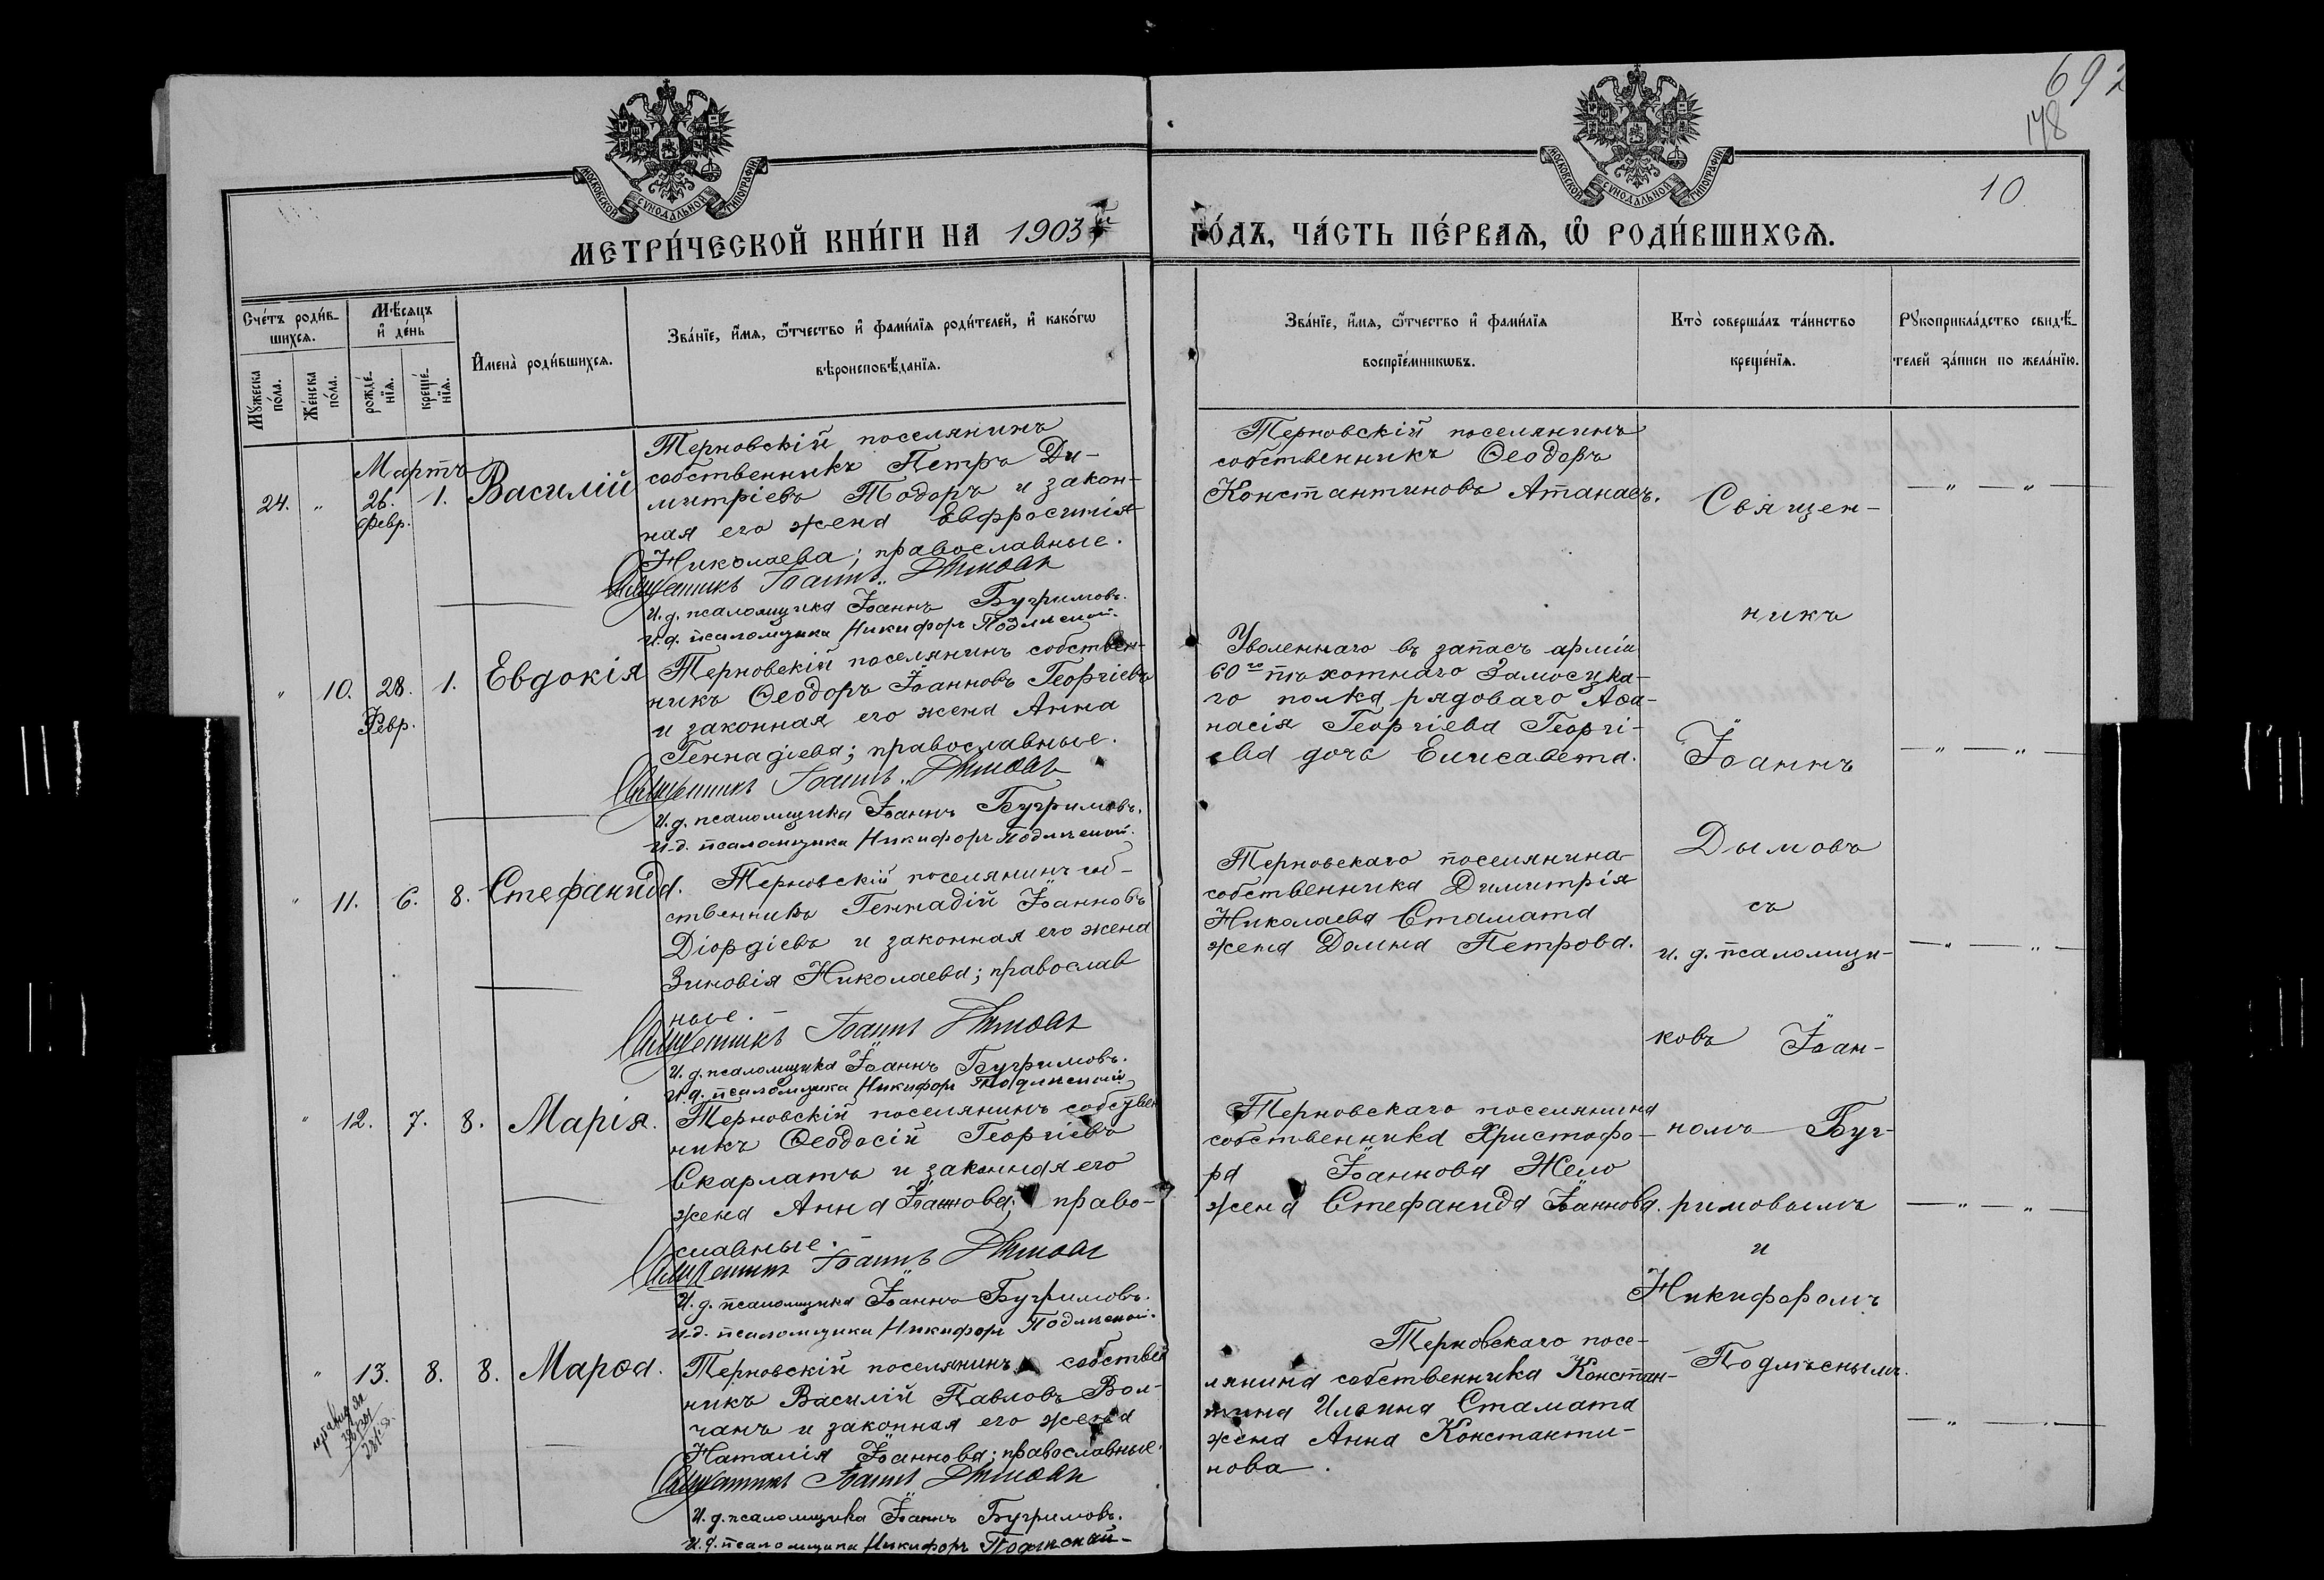 692
178
10
МОСКОВСКОЙ СѴНОДАЛЬНОЙ ТИПОГРАФІИ
МОСКОВСКОЙ СѴНОДАЛЬНОЙ ТИПОГРАФІИ
МЕТРИ́ЧЕСКОЙ КНИ́ГИ НА 1903й
ГО́ДЪ, ЧА́СТЬ ПЕ́РВАѦ, Ѽ РОДИ́ВШИХСѦ.
Сче́тъ роди́в-
шихсѧ.
Мѣ́сяцъ
и҆ де́нь
Мꙋ́жеска
по́ла.
Же́нска
по́ла.
рожде́-
нїѧ.
креще́-
нїѧ.
И҆мена̀ роди́вшихсѧ.
Зва́нїе, и҆́мѧ, ѻ҆́тчество и҆ фами́лїѧ роди́телей, и҆ како́гѡ
вѣроисповѣ́данїѧ.
Зва́нїе, и҆́мѧ, ѻ҆́тчество и҆ фами́лїѧ
воспрїе́мникѡвъ.
Кто̀ соверша́лъ та́инство
креще́нїѧ.
Рꙋкоприкла́дство свидѣ́-
телей за́писи по жела́нїю.
Мартъ
24. " 26. 1. Василій
Февр.
Терновскій поселянинъ
собственникъ Петръ Ди-
митріевъ Тодоръ и закон-
ная его жена Евфросинія
Николаева; православные.
Священникъ Іоаннъ Дымовъ
И. д. псаломщика Іоаннъ Бугримовъ.
И. д. псаломщика Никифоръ Подлѣсной.
Терновскій поселянинъ
собственникъ Ѳеодоръ
Константиновъ Атанасъ.
— " — " —
" 10. 28. 1. Евдокія
Февр.
Терновскій поселянинъ собствен-
никъ Ѳеодоръ Іоанновъ Георгіевъ
и законная его жена Анна
Геннадіева; православные.
Священникъ Іоаннъ Дымовъ
И. д. псаломщика Іоаннъ Бугримовъ.
И. д. псаломщика Никифоръ Подлѣсной.
Уволеннаго въ запасъ арміи
60го пѣхотнаго Замосцка-
го полка рядоваго Аѳа-
насія Георгіева Георгі-
ева дочь Елисавета.
— " — " —
" 11. 6. 8. Стефанида.
Терновскій поселянинъ соб-
ственникъ Геннадій Іоанновъ
Діордіевъ и законная его жена
Зиновія Николаева; православ
ные.
Священникъ Іоаннъ Дымовъ
И. д. псаломщика Іоаннъ Бугримовъ.
И. д. псаломщика Никифоръ Подлѣсной
Терновскаго поселянина
собственника Димитрія
Николаева Стамата
жена Домна Петрова.
— " — " —
" 12. 7. 8. Марія.
Терновскій поселянинъ собствен
никъ Ѳеодосій Георгіевъ
Скарлатъ и законная его
жена Анна Іоаннова; право-
славные.
Священникъ Іоаннъ Дымовъ
И. д. псаломщика Іоаннъ Бугримовъ.
И. д. псаломщика Никифоръ Подлѣсной.
Терновскаго поселянина
собственника Христофо-
ра Іоаннова Жело
жена Стефанида Іоаннова.
— " — " —
" 13. 8. 8. Марѳа.
Терновскій поселянинъ собствен
никъ Василій Павловъ Вол-
чанъ и законная его жена
Наталія Іоаннова; православные.
Священникъ Іоаннъ Дымовъ
И. д. псаломщика Іоаннъ Бугримовъ.
И. д. псаломщика Никифоръ Подлѣсной
Терновскаго посе-
лянина собственника Констан-
тина Ильина Стамата
жена Анна Константи-
нова.
— " — " —
Священ-
никъ
Іоаннъ
Дымовъ
съ
и. д. псаломщи-
ковъ Іоан-
номъ Буг-
римовымъ
и
Никифоромъ
Подлѣснымъ.